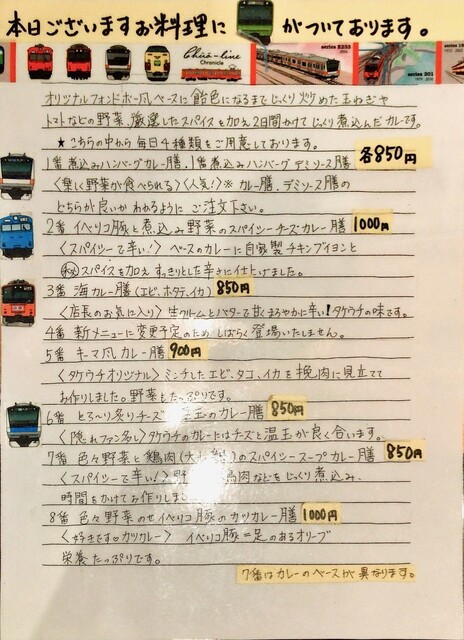 本日ございますお料理に がついております。
Chūō-line
Chronicle
series E233
series 201
オリジナルフォンドボー風ベースに飴色になるまでじっくり炒めた玉ねぎや
トマトなどの野菜、厳選したスパイスを加え2日間かけてじっくり煮込んだカレーです。
★こちらの中から毎日4種類をご用意しております。
1番 煮込みハンバーグカレー膳、1番煮込みハンバーグデミソース膳 各850円
〈楽しく野菜が食べられる〉〈人気!〉※カレー膳、デミソース膳の
どちらが良いかわかるようにご注文下さい。
2番 イベリコ豚と煮込み野菜のスパイシーチーズカレー膳 1000円
〈スパイシーで辛い!〉ベースのカレーに自家製チキンブイヨンと
㊙スパイスを加えすっきりとした辛さに仕上げました。
3番 海カレー膳(エビ、ホタテ、イカ) 850円
〈店長のお気に入り〉生クリームとバターで甘くまろやかに辛い!タケウチの味です。
4番 新メニューに変更予定のためしばらく登場いたしません。
5番 キーマ風カレー膳 900円
〈タケウチオリジナル〉ミンチしたエビ、タコ、イカを挽肉に見立てて
お作りしました。野菜もたっぷりです。
6番 とろ〜り炙りチーズ 玉のカレー膳 850円
〈隠れファン多し〉タケウチのカレーにはチーズと温玉が良く合います。
7番 色々野菜と鶏肉(大 )のスパイシースープカレー膳 850円
〈スパイシーで辛い!〉野 鶏肉などをじっくり煮込み、
時間をかけてお作りしまし
8番 色々野菜のせイベリコ豚のカツカレー膳 1000円
〈好きです♡カツカレー〉 イベリコ豚=足のあるオリーブ
栄養たっぷりです。
7番はカレーのベースが異なります。